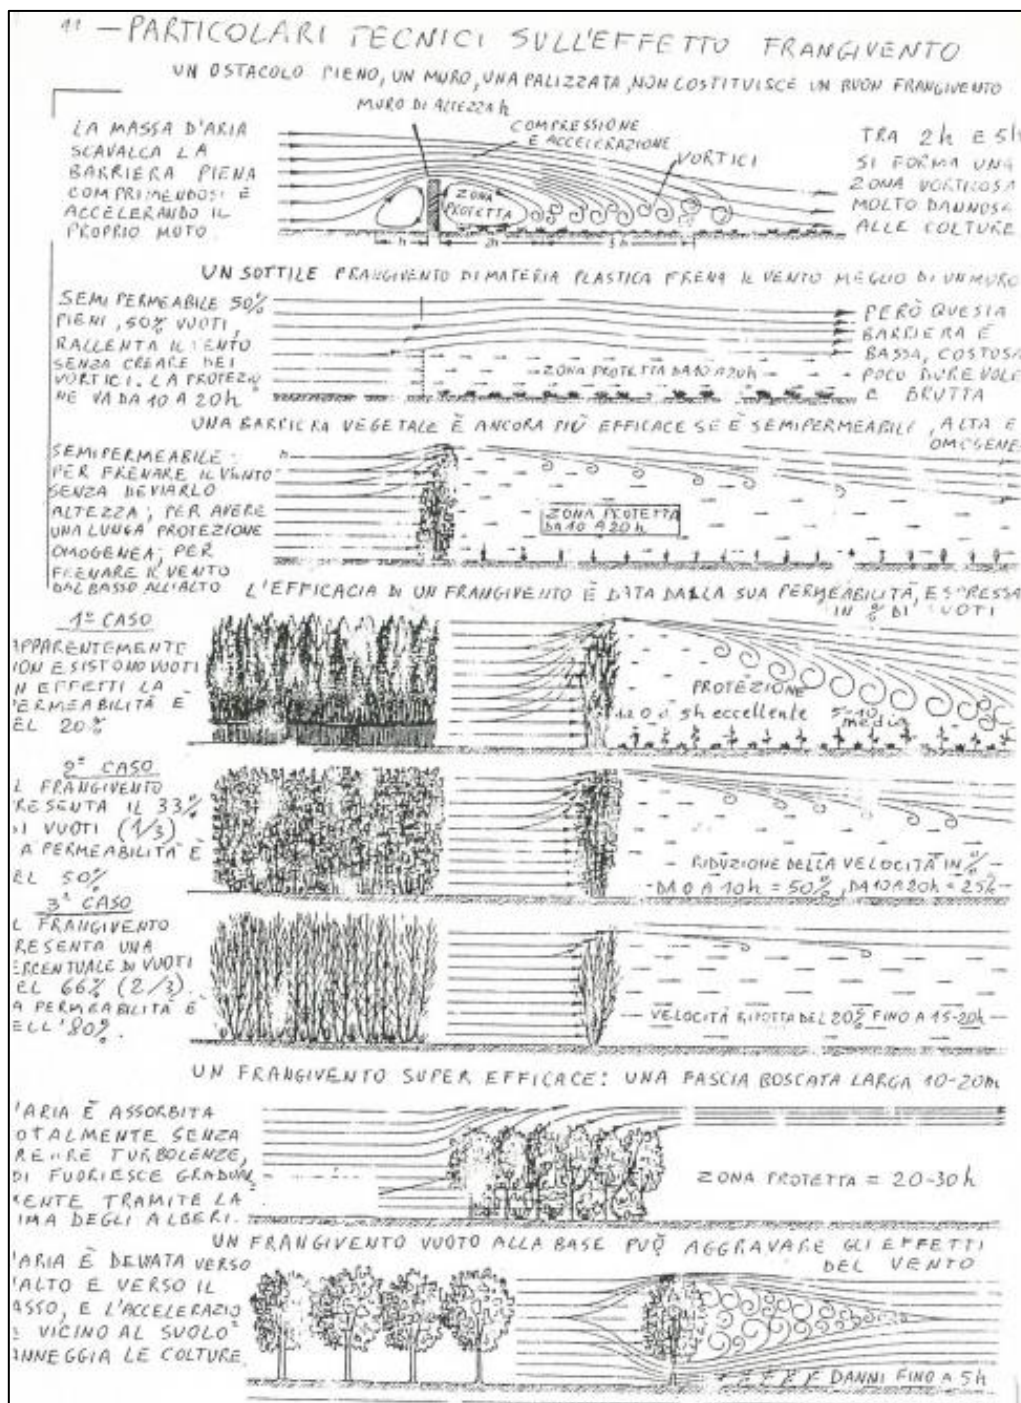 11 — PARTICOLARI TECNICI SULL'EFFETTO FRANGIVENTO
UN OSTACOLO PIENO, UN MURO, UNA PALIZZATA, NON COSTITUISCE UN BUON FRANGIVENTO
MURO DI ALTEZZA h
LA MASSA D'ARIA
SCAVALCA LA
BARRIERA PIENA
COMPRIMENDOSI E
ACCELERANDO IL
PROPRIO MOTO.
COMPRESSIONE
E ACCELERAZIONE
VORTICI
ZONA
PROTETTA
h
2h
5h
TRA 2h E 5h
SI FORMA UNA
ZONA VORTICOSA
MOLTO DANNOSA
ALLE COLTURE
UN SOTTILE FRANGIVENTO DI MATERIA PLASTICA FRENA IL VENTO MEGLIO DI UN MURO
SEMIPERMEABILE 50%
PIENI, 50% VUOTI,
RALLENTA IL VENTO
SENZA CREARE DEI
VORTICI. LA PROTEZIO
NE VA DA 10 A 20h
ZONA PROTETTA DA 10 A 20h
PERÒ QUESTA
BARRIERA È
BASSA, COSTOSA
POCO DUREVOLE
E BRUTTA
UNA BARRIERA VEGETALE È ANCORA PIÙ EFFICACE SE È SEMIPERMEABILE, ALTA E
OMOGENEA
SEMIPERMEABILE:
PER FRENARE IL VENTO
SENZA DEVIARLO
ALTEZZA; PER AVERE
UNA LUNGA PROTEZIONE
OMOGENEA; PER
FRENARE IL VENTO
DAL BASSO ALL'ALTO
ZONA PROTETTA
DA 10 A 20h
L'EFFICACIA DI UN FRANGIVENTO È DATA DALLA SUA PERMEABILITÀ, ESPRESSA
IN % DI VUOTI
1° CASO
APPARENTEMENTE
NON ESISTONO VUOTI
IN EFFETTI LA
PERMEABILITÀ È
DEL 20%
PROTEZIONE
5h eccellente 5-10
media
2° CASO
IL FRANGIVENTO
PRESENTA IL 33%
DI VUOTI (1/3)
LA PERMEABILITÀ È
DEL 50%
RIDUZIONE DELLA VELOCITÀ IN %
DA 0 A 10h = 50%, DA 10 A 20h = 25%
3° CASO
IL FRANGIVENTO
PRESENTA UNA
PERCENTUALE DI VUOTI
DEL 66% (2/3).
LA PERMEABILITÀ È
DELL'80%.
VELOCITÀ RIDOTTA DEL 20% FINO A 15-20h
UN FRANGIVENTO SUPER EFFICACE: UNA FASCIA BOSCATA LARGA 10-20m
L'ARIA È ASSORBITA
TOTALMENTE SENZA
CREARE TURBOLENZE,
DI FUORIESCE GRADUAL
MENTE TRAMITE LA
CIMA DEGLI ALBERI.
ZONA PROTETTA = 20-30h
UN FRANGIVENTO VUOTO ALLA BASE PUÒ AGGRAVARE GLI EFFETTI
DEL VENTO
L'ARIA È DEVIATA VERSO
L'ALTO E VERSO IL
BASSO, E L'ACCELERAZIO
NE VICINO AL SUOLO
DANNEGGIA LE COLTURE.
DANNI FINO A 5h